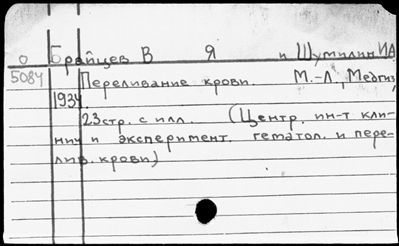 О Брайцев В Я и Шумилин ИА
5084 Переливание крови. М.-Л., Медгиз,
1934.
23стр. с илл. (Центр. ин-т кли-
нич и эксперимент. гематол. и пере-
лив. крови)